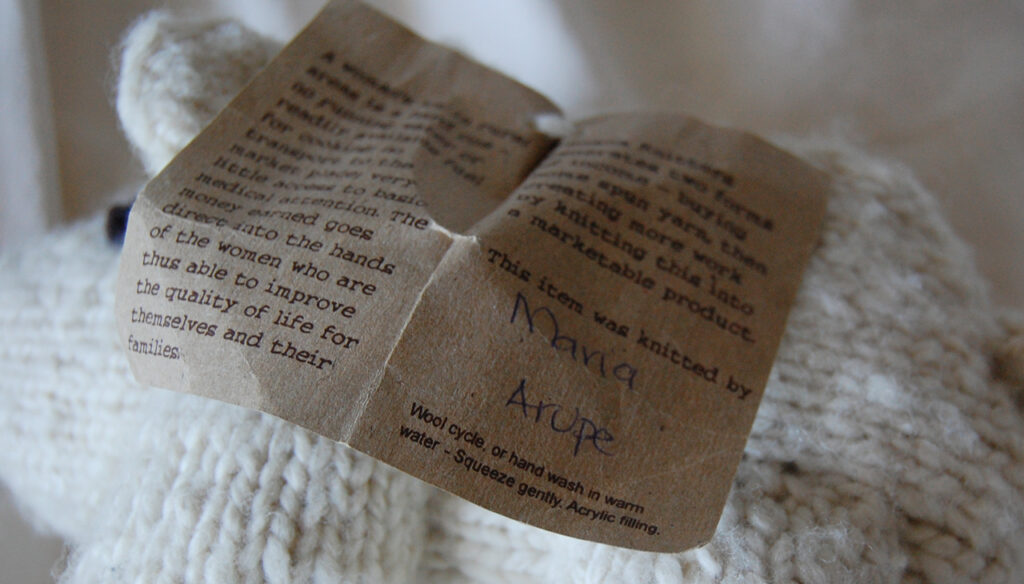 A
areas is
60
readily
for
transport to the
market place, very
little access to basic
medical attention. The
money earned goes
direct into the hands
of the women who are
thus able to improve
the quality of life for
themselves and their
families.
knitters
two forms
income - buying
spun yarn, then
creating more work
by knitting this into
a marketable product.
This item was knitted by
Maria
Arupe
Wool cycle, or hand wash in warm
water - Squeeze gently. Acrylic filling.